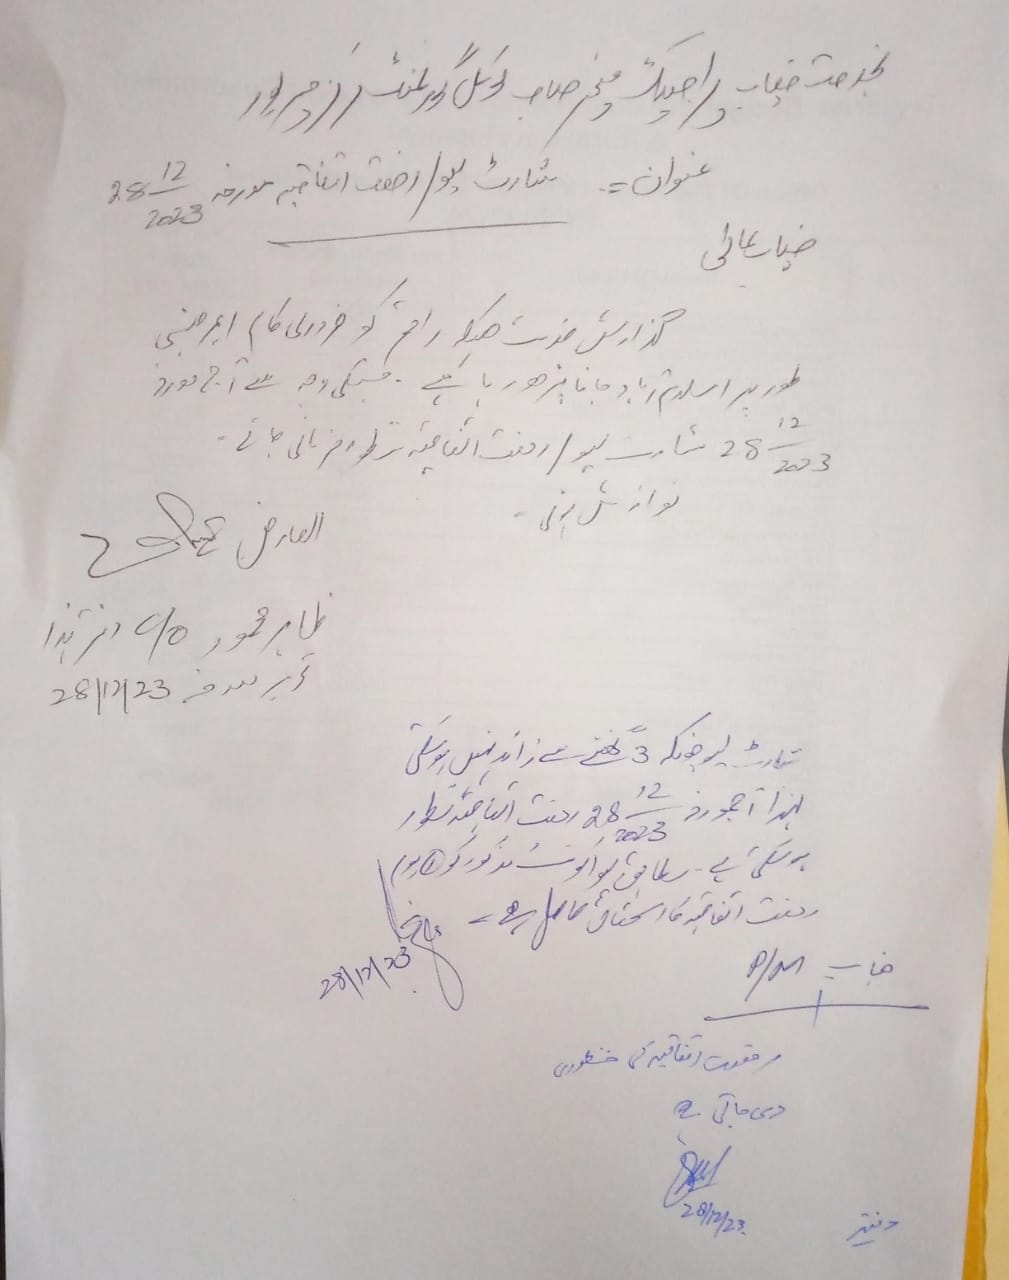 بخدمت جناب پراجیکٹ منیجر صاحب لوکل گورنمنٹ میرپور
عنوان =۔ شارٹ لیو/رخصت اتفاقیہ مورخہ 28-12-2023
جناب عالی
گذارش خدمت ہیکہ راقم کو ضروری کام ایمرجنسی
طور پر اسلام آباد جانا پڑ رہا ہے ۔ جسکی وجہ سے آج مورخہ
28-12-2023 شارٹ لیو/رخصت اتفاقیہ فرمائی جائے ۔
نوازش ہوگی ۔
العارض
طاہر محمود C/O دفتر ہذا
تحریر مورخہ 28/12/23
شارٹ لیو چونکہ 3 گھنٹے سے زائد نہیں ہو سکتی
لہذا آج مورخہ 28-12-2023 رخصت اتفاقیہ منظور
ہو سکتی ہے ۔ مطابق لیو اکاونٹ مذکور کو 1 یوم
رخصت اتفاقیہ کا استحقاق حاصل ہے ۔
28/12/23
جناب P/M
رخصت اتفاقیہ کی منظوری
دی جاتی ہے
28/12/23
دفتر